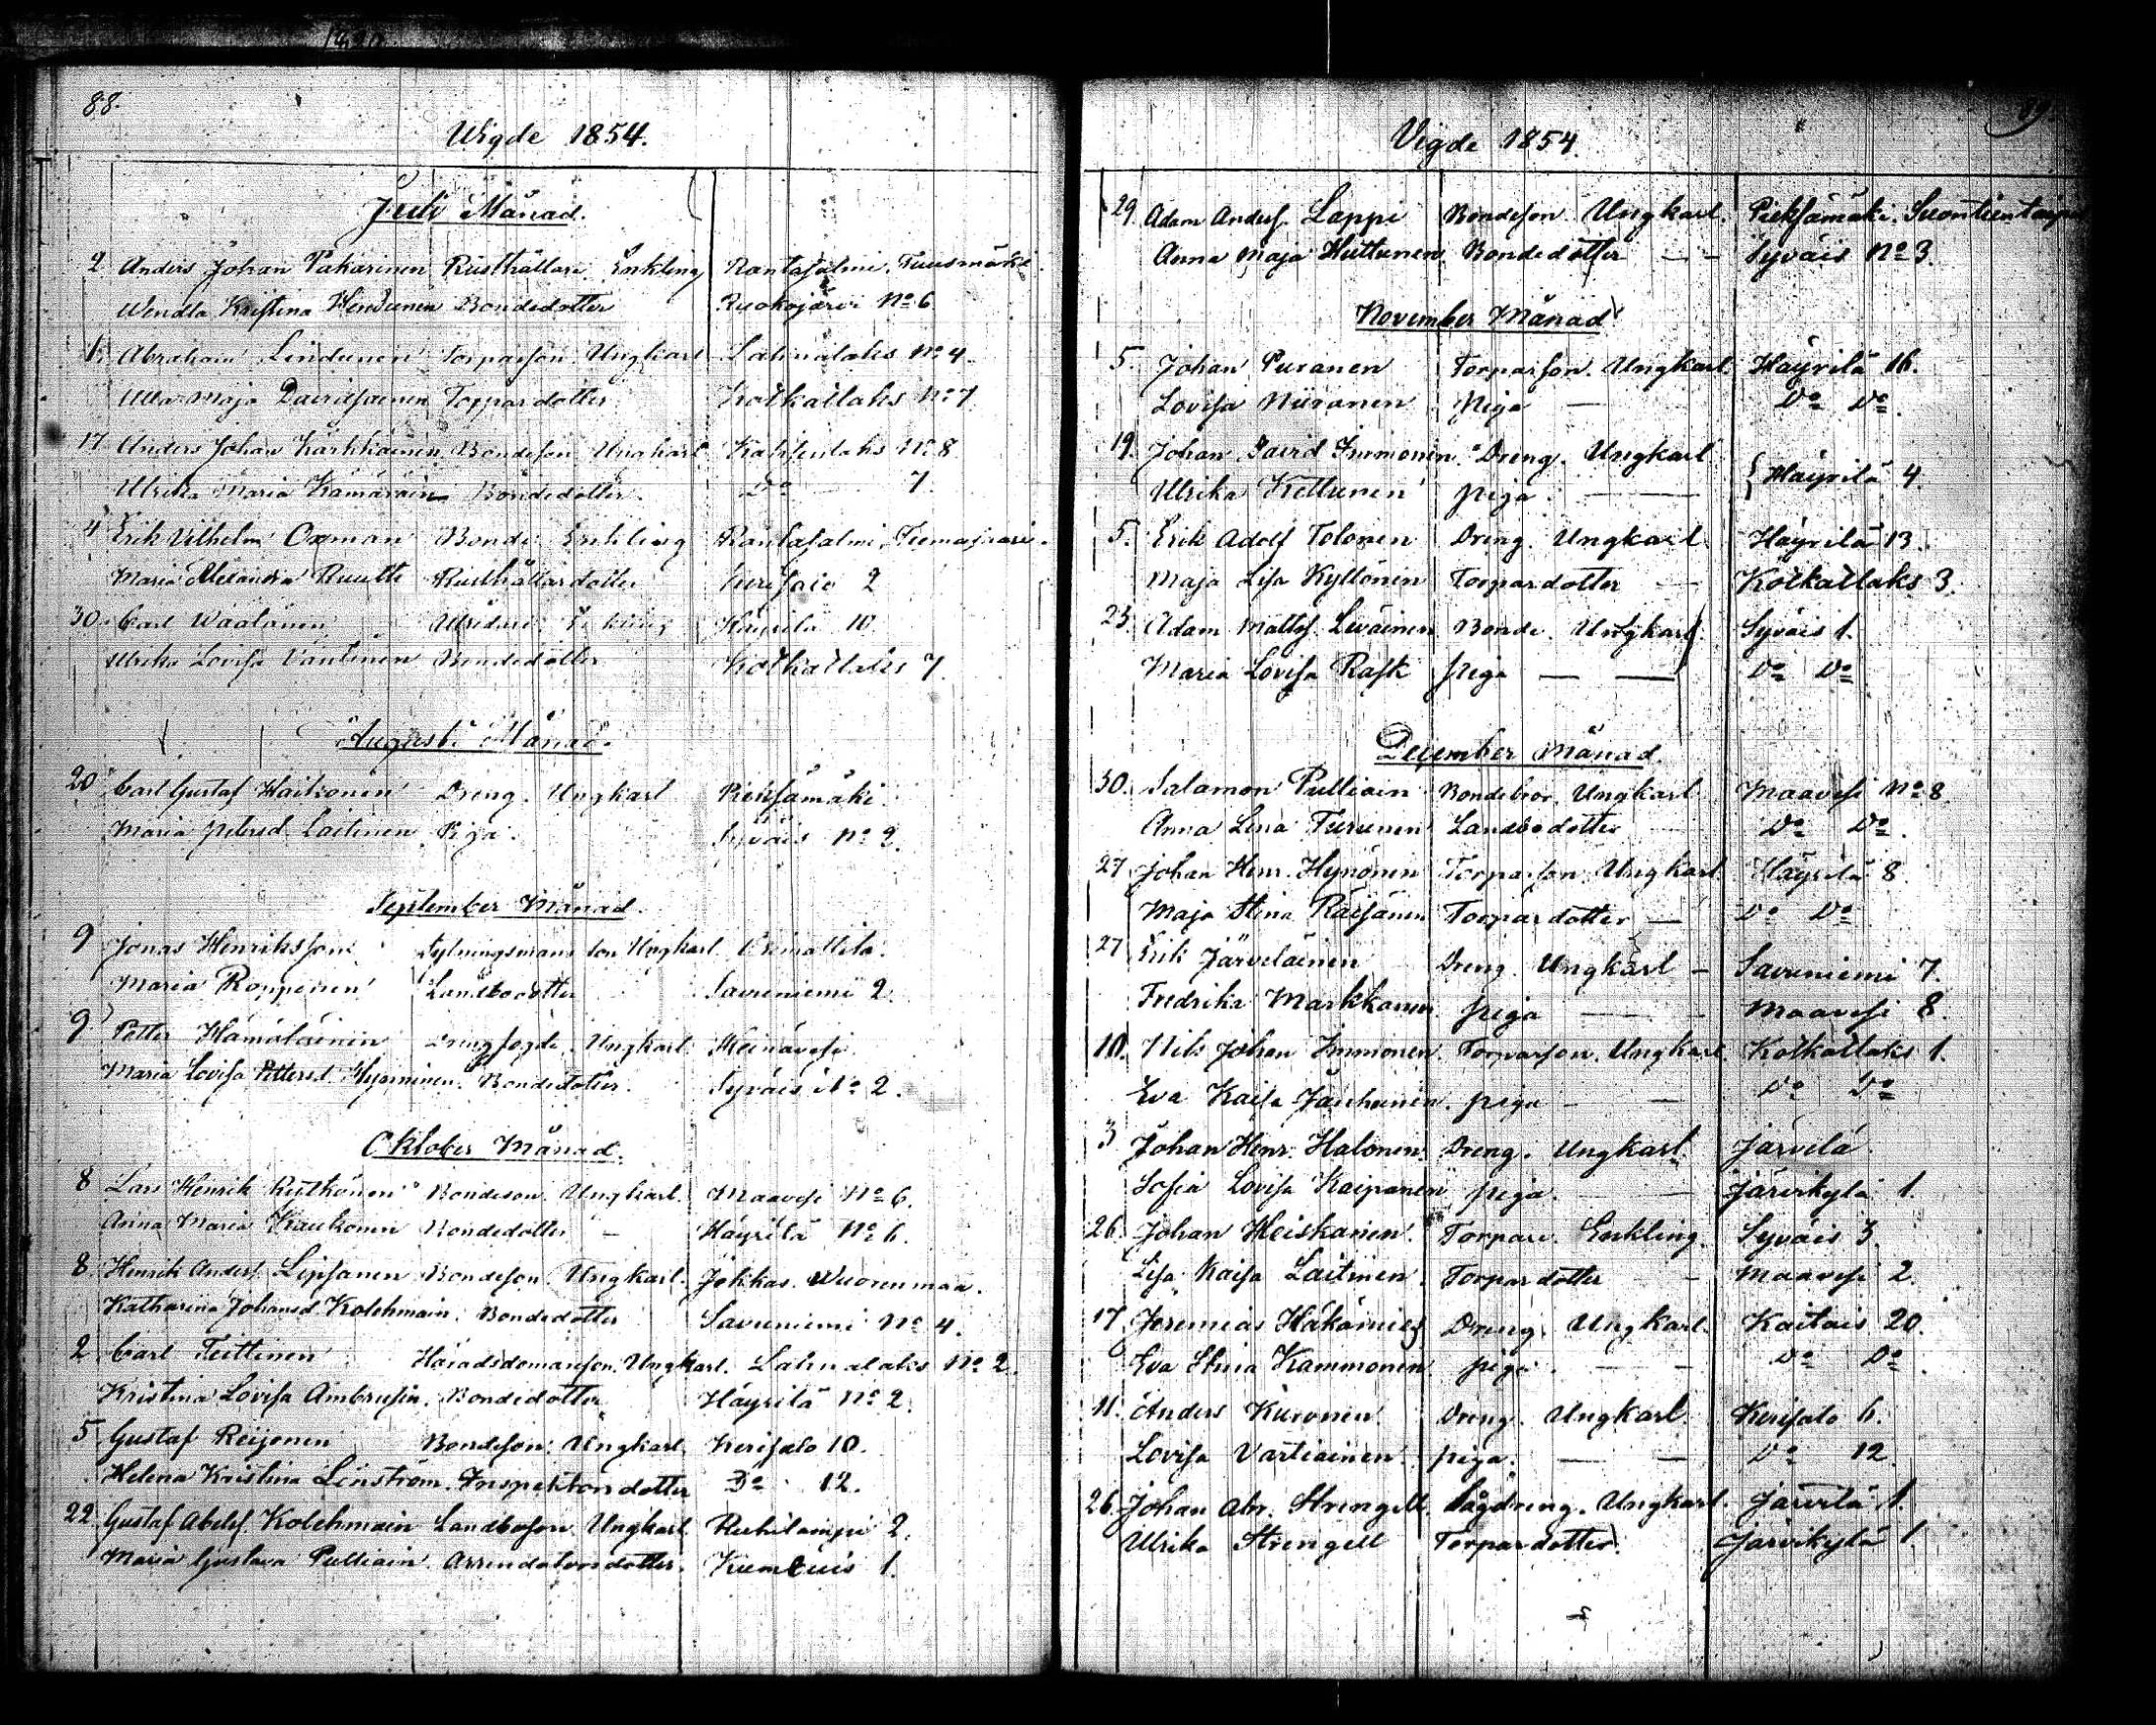 88.
Wigde 1854.
Juli Månad.
2 Anders Johan Pakarinen Rusthållare Enkling Rantasalmi. Tuusmäki
Wendla Kristina Bondedotter Ruokojärvi No 6
Abraham Lindunen Torparson Ungkarl Lahnalaks No 4.
Ulla Maja Torpardotter Kotkatlaks No 7
17 Anders Johan Karhkäinen Bondeson Ungkarl No 8
Ulrika Maria Kämäräin Bondedotter Do 7.
4 Erik Vilhelm Oxman Bonde Enkling Rantasalmi
Maria Alexandra Ruuth Rusthållardotter 2
30. Carl Wäätänen Häyrilä 10
Ulrika Lovisa Väntinen Bondedotter Kotkatlaks 7.
Augusti Månad.
20 Carl Gustaf Haikonen Dreng. Ungkarl Pieksämäki.
Maria Petersd. Laitinen Piga. Syväis No 2.
September Månad.
9 Jonas Henriksson Ungkarl Orimattila.
Maria Ropponen Landbodotter Savuniemi 2
9 Petter Hämäläinen Drengfogde. Ungkarl. Heinävesi.
Maria Lovisa Pettersd. Hyvminen. Bondedotter. Syväis No 2.
Oktober Månad.
8 Lars Henrik Rutkonen Bondeson. Ungkarl. Maavesi No 6.
Anna Maria Kaukonen Bondedotter – Häyrilä No 6.
8. Henrik Andersf. Lipsanen Bondeson. Ungkarl. Jokkas. Wuorenmaa.
Katharina Johansd. Kolehmain. Bondedotter Savuniemi No 4.
2. Carl Teittinen Häradsdomareson. Ungkarl. Lahnalaks No 2.
Kristina Lovisa Ambrusin. Bondedotter Häyrilä No 2.
5 Gustaf Reijonen Bondeson. Ungkarl. Kerisalo 10.
Helena Kristina Linström. Inspektorsdotter Do 12.
22. Gustaf Abelsf. Kolehmain Landboson Ungkarl. Ruhilampi 2.
Maria Gustava Pulliain. Arrendatorsdotter. 1.
Vigde 1854.
29. Adam Andersf. Lappi Bondeson. Ungkarl. Pieksämäki.
Anna Maja Huttunen Bondedotter – – Syväis No 3.
November Månad
5. Johan Puranen Torparson. Ungkarl. Häyrilä 16.
Lovisa Niiranen Piga — Do Do.
19. Johan David Immonen Dreng. Ungkarl
Ulrika Kettunen piga. — — Häyrilä 4.
5. Erik Adolf Tolonen Dreng. Ungkarl. Häyrilä 13.
Maja Lisa Kyllönen Torpardotter — Kotkatlaks 3.
23. Adam Mattsf. Leväinen Bonde. Ungkarl. Syväis 1.
Maria Lovisa Rask piga — — Do Do
December Månad.
30. Salamon Pulliain Bondebror. Ungkarl Maavesi No 8.
Anna Lena Turunen Landbodotter — Do Do.
27 Johan Henr. Hynönen Torparson. Ungkarl Häyrilä 8.
Maja Stina Räisänen Torpardotter — Do Do
27 Erik Järveläinen Dreng. Ungkarl – Savuniemi 7.
Fredrika Markkanen. piga — – Maavesi 8.
10. Nils Johan Immonen. Torparson. Ungkarl. Kotkatlaks 1.
Eva Kaisa Jauhunen. piga – — Do Do
3 Johan Henr. Halonen. Dreng. Ungkarl. Järvelä.
Sofia Lovisa Kaipanen piga. — Järvikylä 1.
26. Johan Heiskanen. Torpare. Enkling. Syväis 3.
Lisa Kaisa Laitinen. Torpardotter – Maavesi 2.
17. Jeremias Häkämies Dreng. Ungkarl. Kaitais 20.
Eva Stina Kammonen piga. — — Do Do.
11. Anders Kuronen. Dreng. Ungkarl. Kerisalo 6.
Lovisa Vartiainen. piga. — — Do 12.
26. Johan Abr. Strengell. Ungkarl. Järvelä 1.
Ulrika Strengell Torpardotter. Järvikylä 1